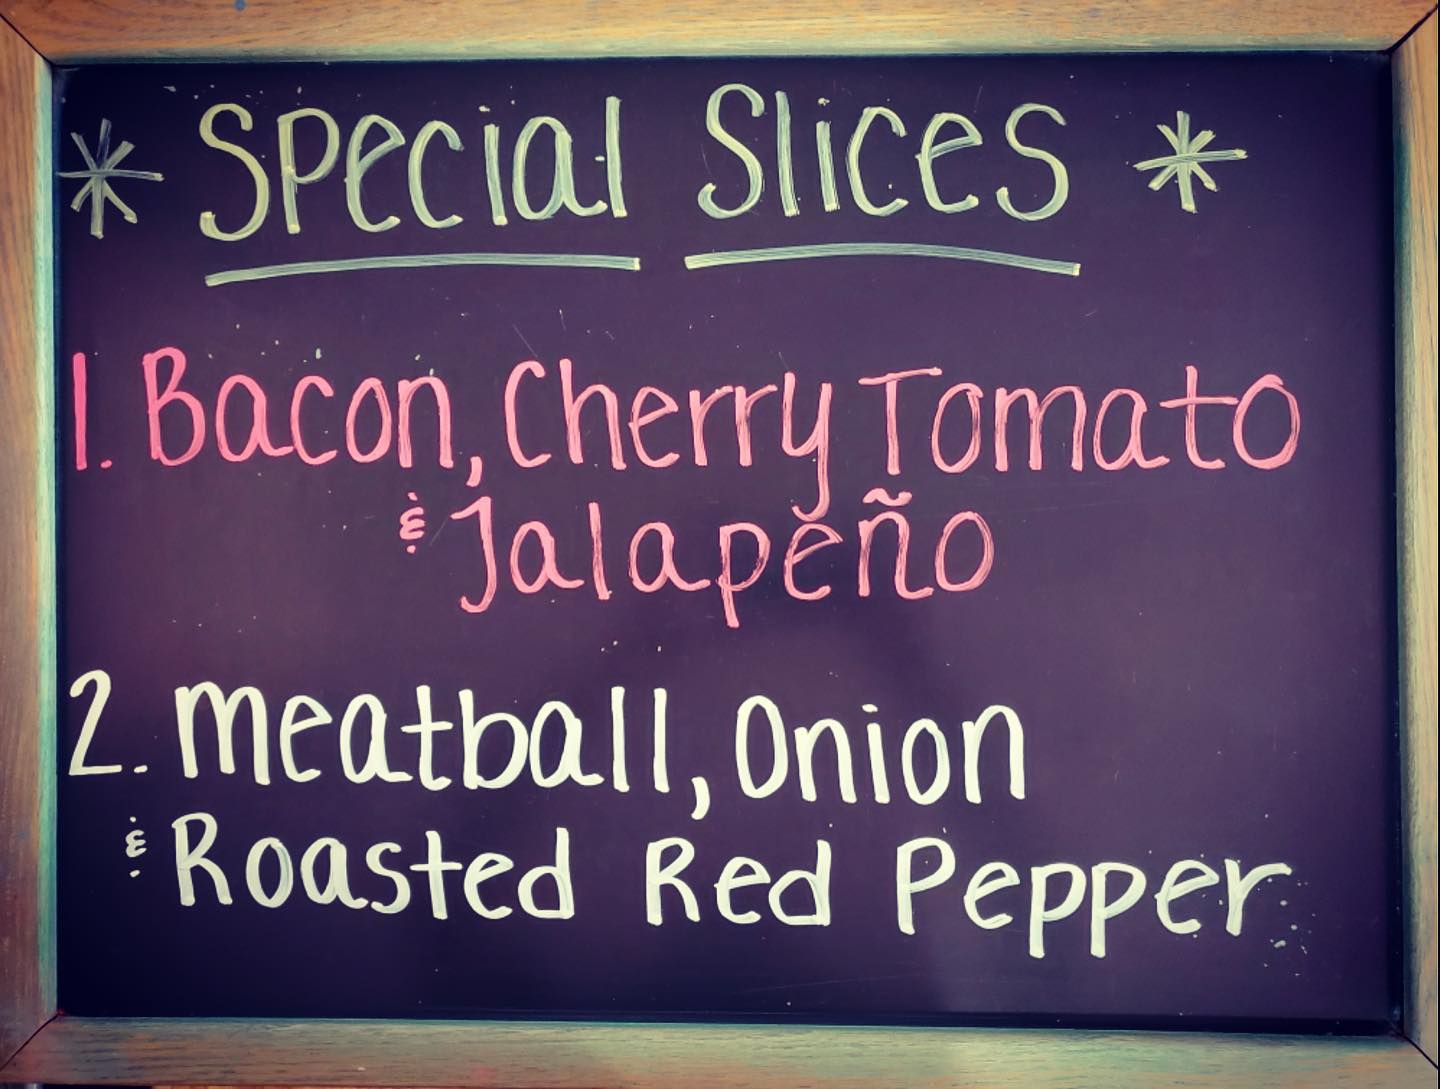 * Special Slices *
1. Bacon, Cherry Tomato
& Jalapeño
2. Meatball, Onion
& Roasted Red Pepper